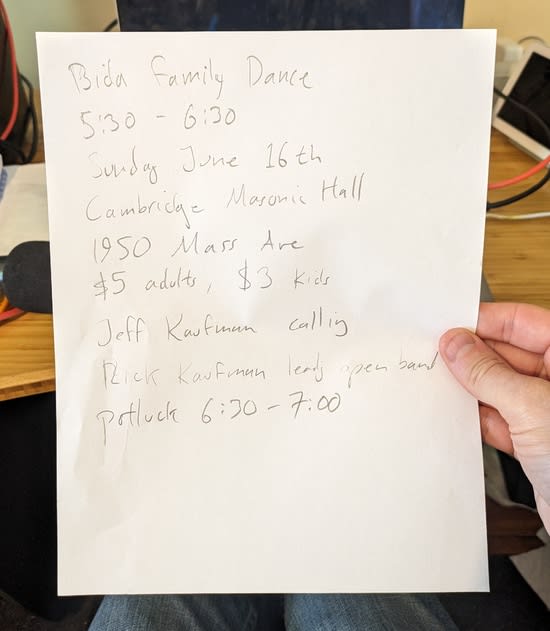 Bida Family Dance
5:30 - 6:30
Sunday June 16th
Cambridge Masonic Hall
1950 Mass Ave
$5 adults, $3 kids
Jeff Kaufman calling
Rick Kaufman leads open band
potluck 6:30 - 7:00